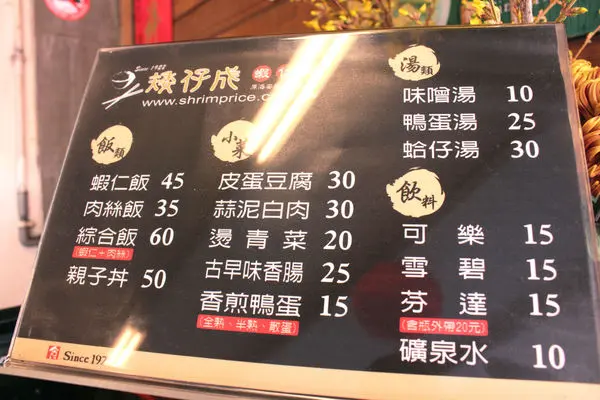 Since 1922
矮仔成 蝦仁
www.shrimprice.c
飯類
蝦仁飯 45
肉絲飯 35
綜合飯 60
(蝦仁+肉絲)
親子丼 50
小菜
皮蛋豆腐 30
蒜泥白肉 30
燙青菜 20
古早味香腸 25
香煎鴨蛋 15
(全熟、半熟、散蛋)
湯類
味噌湯 10
鴨蛋湯 25
蛤仔湯 30
飲料
可樂 15
雪碧 15
芬達 15
(含瓶外帶20元)
礦泉水 10
Since 192